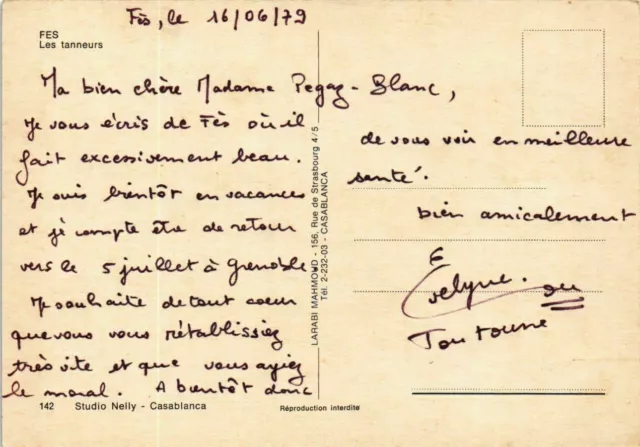 Fès, le 16/06/79
FES
Les tanneurs
Ma bien chère Madame Pegaz-Blanc,
Je vous écris de Fès où il
fait excessivement beau.
Je suis bientôt en vacances
et je compte être de retour
vers le 5 juillet à Grenoble
Je souhaite de tout coeur
que vous vous rétablissiez
très vite et que vous ayiez
le moral. A bientôt donc
142 Studio Nelly - Casablanca
LARABI MAHMOUD - 156, Rue de Strasbourg 4/5
Tél. 2-232-03 - CASABLANCA
de vous voir en meilleure
santé.
bien amicalement
Evelyne. ou
Toutoune
Réproduction interdite